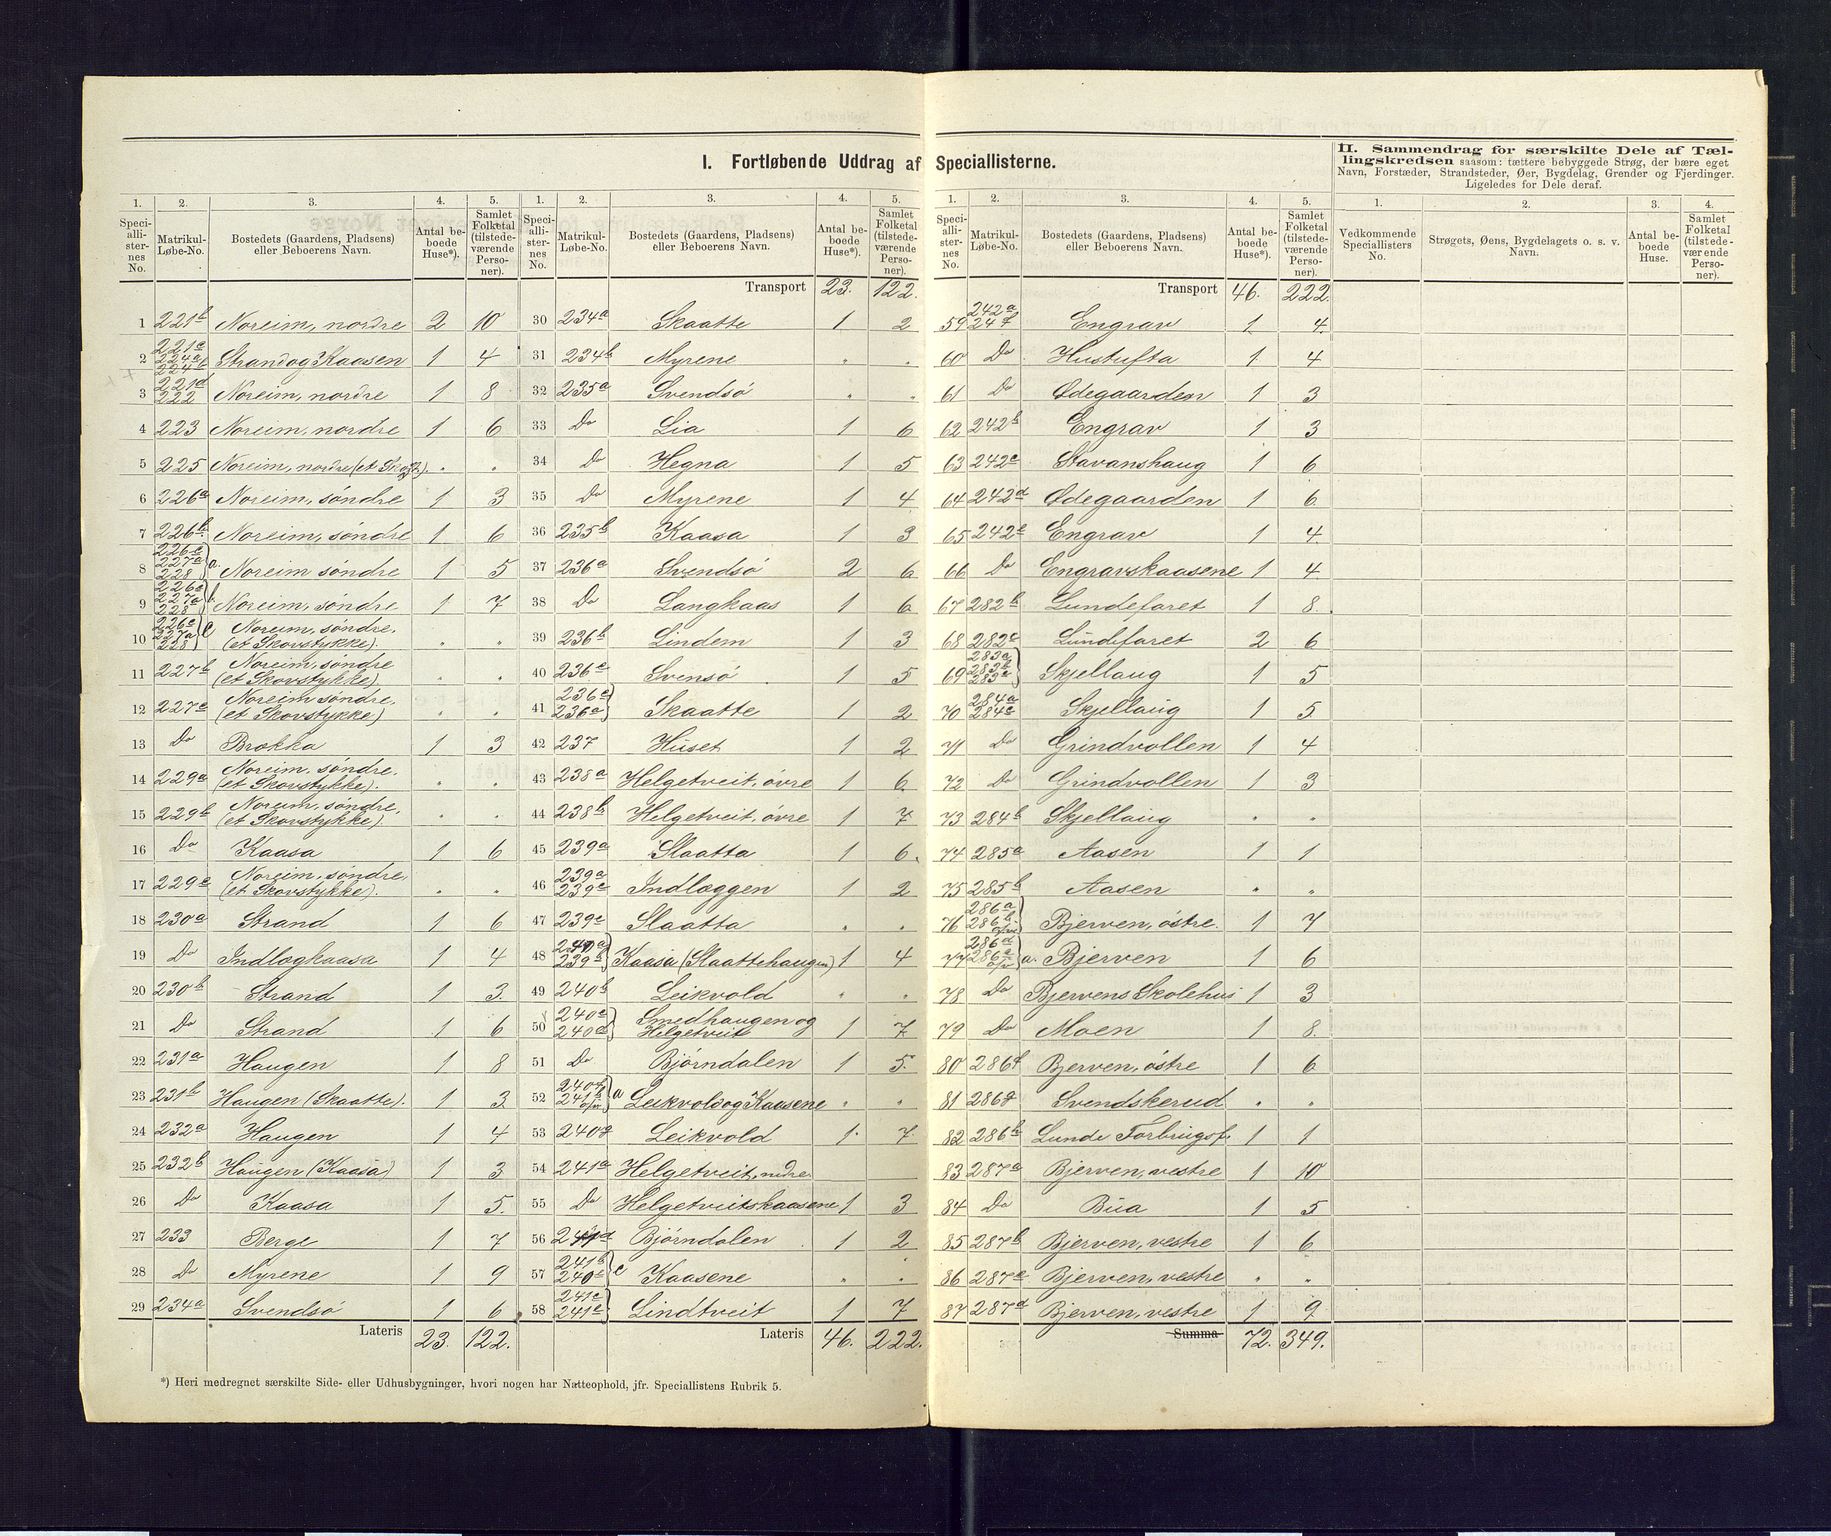 I. Fortløbende Uddrag af Speciallisterne.
II. Sammendrag for særskilte Dele af Tæl-
lingskredsen saasom: tættere bebyggede Strøg, der bære eget
Navn, Forstæder, Strandsteder, Øer, Bygdelag, Grender og Fjerdinger.
Ligeledes for Dele deraf.
1. 2. 3. 4. 5. 1. 2. 3. 4. 5. 1. 2. 3. 4. 5. 1. 2. 3. 4.
Speciallisternes No. Matrikul-Løbe-No. Bostedets (Gaardens, Pladsens) eller Beboerens Navn. Antal beboede Huse*). Samlet Folketal (tilstedeværende Personer).
Speciallisternes No. Matrikul-Løbe-No. Bostedets (Gaardens, Pladsens) eller Beboerens Navn. Antal beboede Huse*). Samlet Folketal (tilstedeværende Personer).
Speciallisternes No. Matrikul-Løbe-No. Bostedets (Gaardens, Pladsens) eller Beboerens Navn. Antal beboede Huse*). Samlet Folketal (tilstedeværende Personer).
Vedkommende Speciallisters No. Strøgets, Øens, Bygdelagets o. s. v. Navn. Antal beboede Huse. Samlet Folketal (tilstedeværende Personer).
1 221b Noreim, nordre 2 10
2 221c 224a 224b Strand og Kaasen 1 4
3 221d 222 Noreim, nordre 1 8
4 223 Noreim, nordre 1 6
5 225 Noreim, nordre (et Skogst.) " "
6 226a Noreim, søndre 1 3
7 226b Noreim, søndre 1 6
8 226c 227a 228 a. Noreim søndre 1 5
9 226c 227a 228 b. Noreim, søndre 1 7
10 226c 227a 228 c Noreim, søndre. (et Skovstykke). " "
11 227b Noreim, søndre (et Skovstykke) " "
12 227c Noreim søndre. (et Skovstykke) " "
13 Do Brokka 1 3
14 229a Noreim, søndre. (et Skovstykke). " "
15 229b Noreim, søndre. (et Skovstykke). " "
16 Do Kaasa 1 6
17 229c Noreim, søndre. (et Skovstykke). " "
18 230a Strand 1 6
19 Do Indlægkaasa 1 4
20 230b Strand 1 3.
21 Do Strand 1 6
22 231a Haugen 1 8
23 231b Haugen (Skaatte). 1 3
24 232a Haugen 1 4
25 232b Haugen (Kaasa) 1 3
26 Do Kaasa 1 5.
27 233 Berge 1 7
28 Do Myrene 1 9
29 234a Svendsø 1 6
Lateris 23. 122.
Transport 23. 122.
30 234a Skaatte 1 2
31 234b Myrene " "
32 235a Svendsø " "
33 Do Lia 1 6
34 Do Hegna 1 5
35 Do Myrene 1 4
36 235b Kaasa 1 3
37 236a Svendsø 2 6
38 Do Langkaas 1 6
39 236b Lindem 1 3
40 236c Svensø 1 5
41 236c 236a Skaatte 1 2
42 237 Huset 1 2
43 238a Helgetveit, øvre 1 6
44 238b Helgetveit, øvre 1 7
45 239a Slaatta 1 6.
46 239a 239c Indlæggen 1 2
47 239c Slaatta " "
48 240a 239b Kaasa (Slaattehaugen) 1 4
49 240b Leikvold " "
50 240c 240d Smedhaugen og Helgetveit 1 7
51 Do Bjørndalen 1 5.
52 240f 241b o/m a Leikvold og Kaasene " "
53 240g Leikvold 1 7.
54 241a Helgetveit, nedre.
55 Do Helgetveitskaasene 1 3
56 241d Bjørndalen 1 2
57 241b 240e c Kaasene " "
58 241c 241e Lindtveit 1 7
Lateris 46. 222.
Transport 46. 222.
59 242a 24 f Engrav 1 4
60 Do Hustufta 1 4
61 Do Ødegaarden 1 3
62 242b Engrav 1 3
63 242c Stavanshaug 1 6
64 242d Ødegaarden 1 6
65 242e Engrav 1 4
66 Do Engravskaasene 1 4
67 282b Lundefaret 1 8.
68 282c Lundefaret 2 6
69 283a 283b 283c Skjellaug 1 5
70 284a 284c Skjellaug 1 5
71 Do Grindvollen 1 4
72 Do Grindvollen 1 3
73 284b Skjellaug " "
74 285a Aasen 1 1
75 285b Aasen " "
76 286a 286b Bjerven, østre. 1 7
77 286d 286e a. Bjerven 1 6
78 Do Bjervens Skolehus 1 3
79 Do Moen 1 8.
80 286f Bjerven, østre 1 6
81 286g Svendskerud " "
82 286h Lunde Forbrugsf. 1 1
83 287a Bjerven, vestre 1 10
84 Do Bua 1 5
85 287b Bjerven, vestre 1 6
86 287c Bjerven, vestre " "
87 287d Bjerven, vestre 1 9
Summa 72. 349.
*) Heri medregnet særskilte Side- eller Udhusbygninger, hvori nogen har Natteophold, jfr. Speciallistens Rubrik 5.